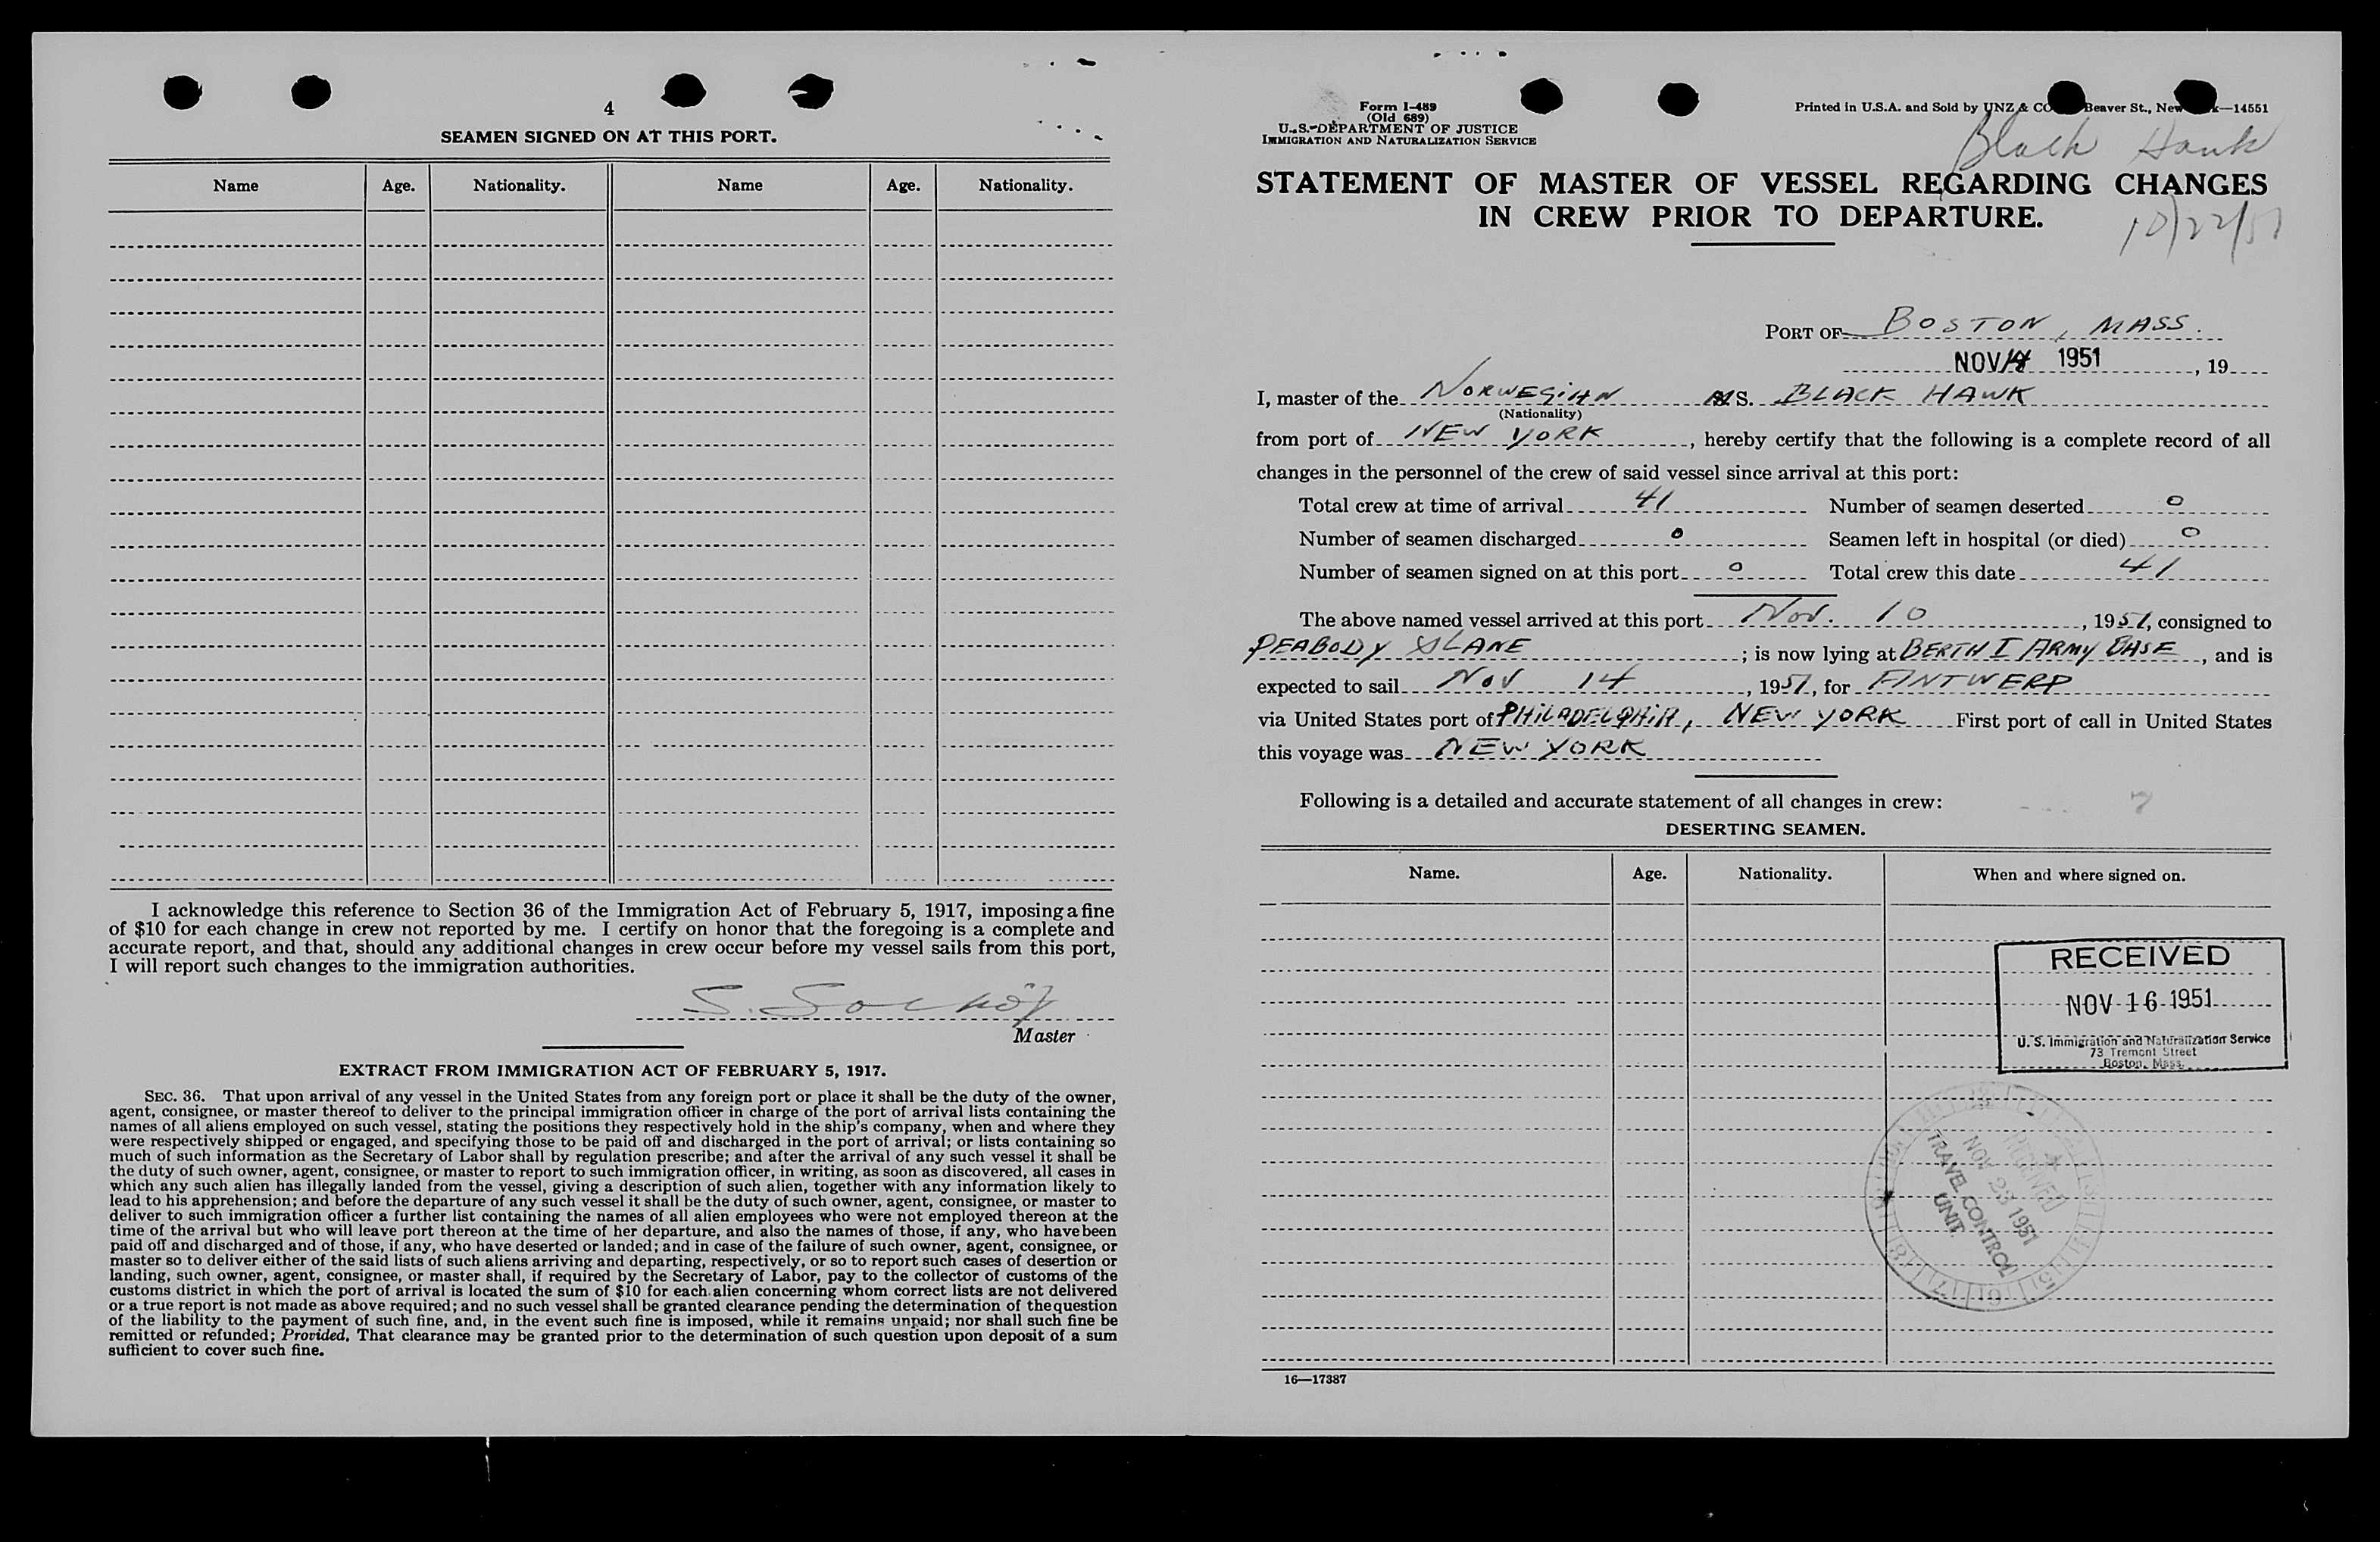 4
SEAMEN SIGNED ON AT THIS PORT.
Name Age. Nationality. Name Age. Nationality.
I acknowledge this reference to Section 36 of the Immigration Act of February 5, 1917, imposing a fine
of $10 for each change in crew not reported by me. I certify on honor that the foregoing is a complete and
accurate report, and that, should any additional changes in crew occur before my vessel sails from this port,
I will report such changes to the immigration authorities.
S.
Master
EXTRACT FROM IMMIGRATION ACT OF FEBRUARY 5, 1917.
SEC. 36. That upon arrival of any vessel in the United States from any foreign port or place it shall be the duty of the owner,
agent, consignee, or master thereof to deliver to the principal immigration officer in charge of the port of arrival lists containing the
names of all aliens employed on such vessel, stating the positions they respectively hold in the ship's company, when and where they
were respectively shipped or engaged, and specifying those to be paid off and discharged in the port of arrival; or lists containing so
much of such information as the Secretary of Labor shall by regulation prescribe; and after the arrival of any such vessel it shall be
the duty of such owner, agent, consignee, or master to report to such immigration officer, in writing, as soon as discovered, all cases in
which any such alien has illegally landed from the vessel, giving a description of such alien, together with any information likely to
lead to his apprehension; and before the departure of any such vessel it shall be the duty of such owner, agent, consignee, or master to
deliver to such immigration officer a further list containing the names of all alien employees who were not employed thereon at the
time of the arrival but who will leave port thereon at the time of her departure, and also the names of those, if any, who have been
paid off and discharged and of those, if any, who have deserted or landed; and in case of the failure of such owner, agent, consignee, or
master so to deliver either of the said lists of such aliens arriving and departing, respectively, or so to report such cases of desertion or
landing, such owner, agent, consignee, or master shall, if required by the Secretary of Labor, pay to the collector of customs of the
customs district in which the port of arrival is located the sum of $10 for each alien concerning whom correct lists are not delivered
or a true report is not made as above required; and no such vessel shall be granted clearance pending the determination of the question
of the liability to the payment of such fine, and, in the event such fine is imposed, while it remains unpaid; nor shall such fine be
remitted or refunded; Provided, That clearance may be granted prior to the determination of such question upon deposit of a sum
sufficient to cover such fine.
Form I-489
(Old 689)
U. S. DEPARTMENT OF JUSTICE
IMMIGRATION AND NATURALIZATION SERVICE
Printed in U.S.A. and Sold by UNZ & CO Beaver St., New —14551
Black Hawk
STATEMENT OF MASTER OF VESSEL REGARDING CHANGES
IN CREW PRIOR TO DEPARTURE.
10/22/51
PORT OF BOSTON, MASS.
NOV 14 1951, 19
I, master of the NORWEGIAN MS. BLACK HAWK
(Nationality)
from port of NEW YORK, hereby certify that the following is a complete record of all
changes in the personnel of the crew of said vessel since arrival at this port:
Total crew at time of arrival 41 Number of seamen deserted 0
Number of seamen discharged 0 Seamen left in hospital (or died) 0
Number of seamen signed on at this port 0 Total crew this date 41
The above named vessel arrived at this port Nov. 10, 1951, consigned to
PEABODY & LANE; is now lying at BERTH I ARMY BASE, and is
expected to sail NOV 14, 1951, for ANTWERP
via United States port of PHILADELPHIA, NEW YORK First port of call in United States
this voyage was NEW YORK
Following is a detailed and accurate statement of all changes in crew:
DESERTING SEAMEN.
Name. Age. Nationality. When and where signed on.
RECEIVED
NOV 16 1951
U. S. Immigration and Naturalization Service
73 Tremont Street
Boston, Mass.
RECEIVED
NOV 23 1951
TRAVEL CONTROL
UNIT
16—17387